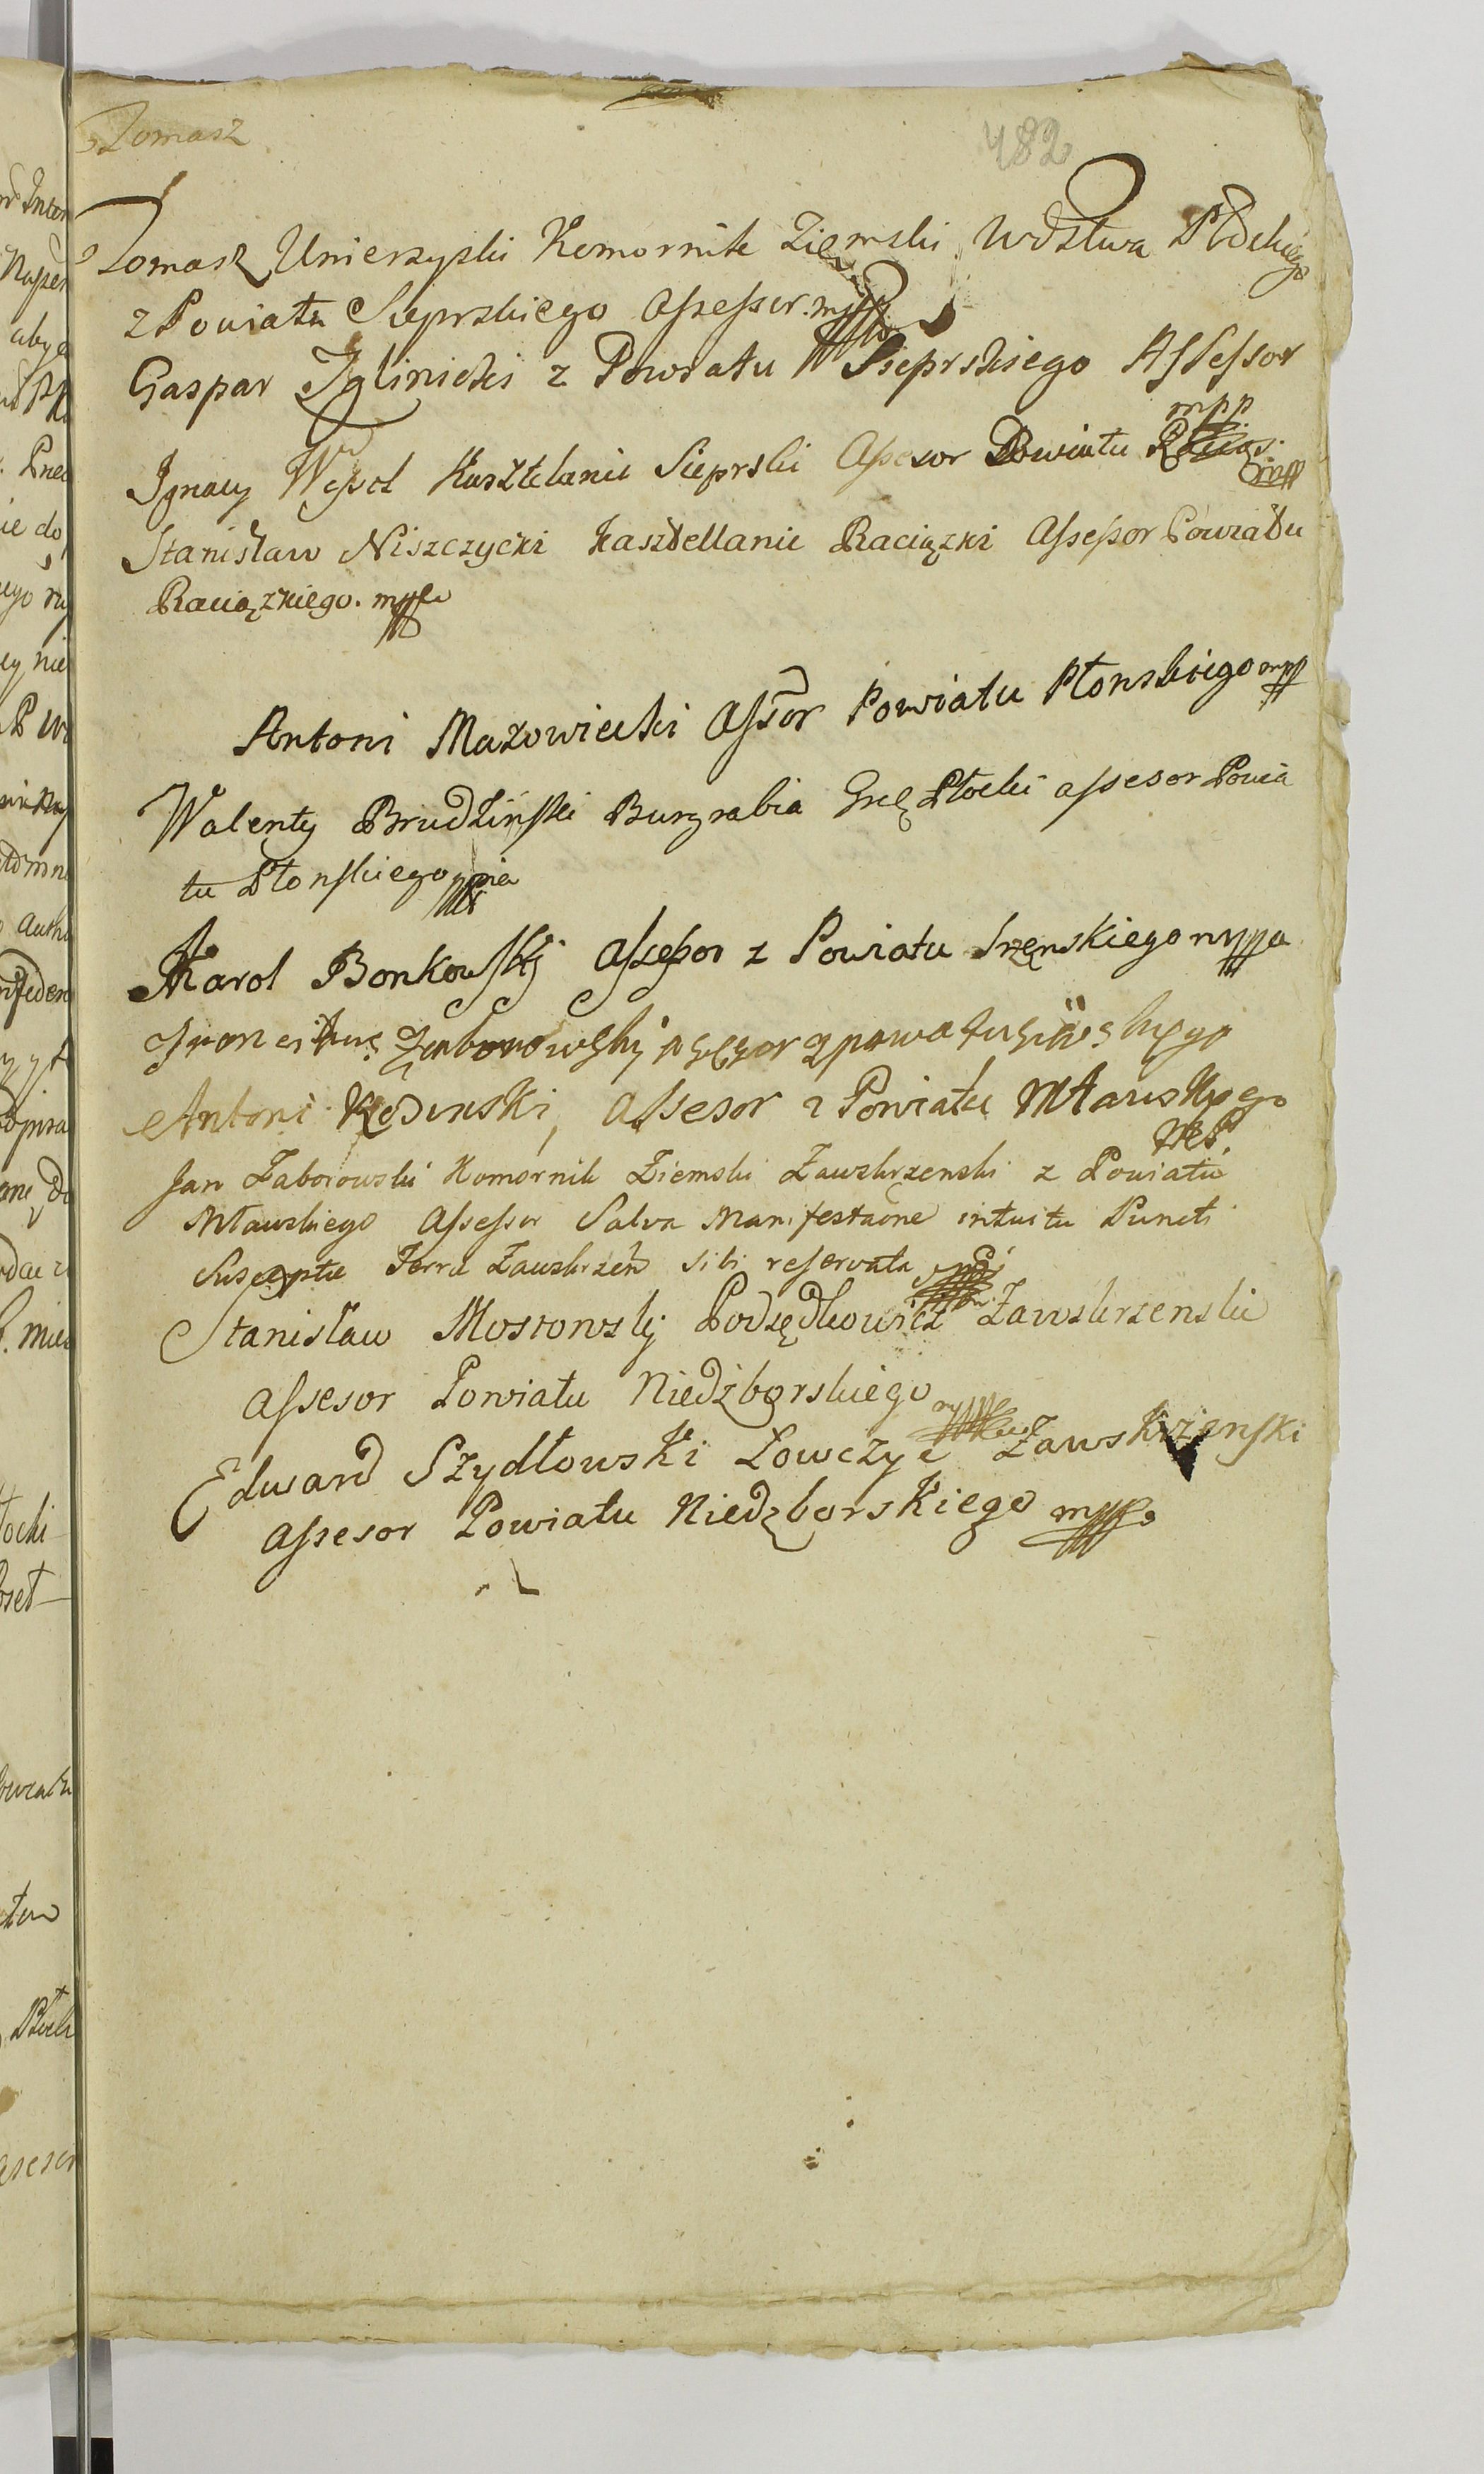 Tomasz
482
Tomasz Unierzyski Komornik Ziemski Wdstwa Płockiego
z Powiatu Sieprskiego Assessor. mpp
Gaspar Iglinicki z Powiatu Sieprskiego Assessor
mpp
Ignacy Wessel Kasztelanic Sieprski Assesor Powiatu
mpp
Stanisław Niszczycki kasztellanic Raciązki Assessor Powiatu
Raciązkiego. mppa
Antoni Mazowiecki Assor Powiatu Płonskiego mpp
Walenty Brudziński Burgrabia Płocki assesor Powia
tu Płonskiego mppia
Karol Bonkowskj Assessor z Powiatu Srzęnskiego mppa
Zaborowskj
Antoni Kosinski, Assesor z Powiatu Mławskyego
MP.
Jan Zaborowski Komornik Ziemski Zawskrzenski z Powiatu
Mławskiego Assessor Salva Manifestaone intuitu Puncti
Susceptu Terra Zawskrzen sibi reservata mpp
Stanisław Mostowskj Podsędkowicz Zawskrzenski
Assesor Powiatu Niedzborskiego mpp
Edward Szydłowski Łowczyc Zawskrzenski
Assesor Powiatu Niedzborskiego mppa